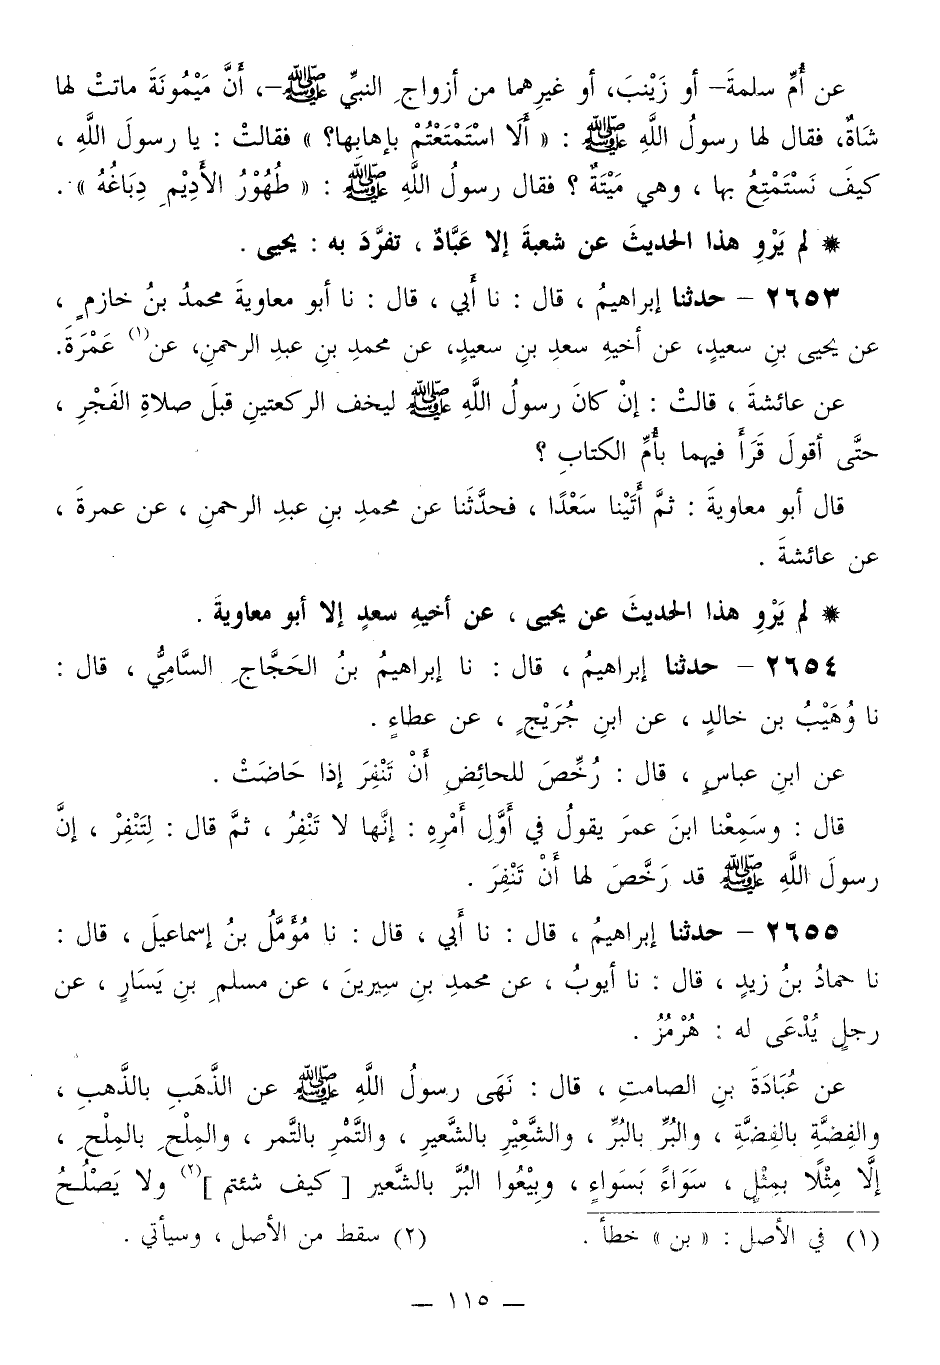 عن أُمِّ سلمةَ– أو زَيْنبَ، أو غيرِهما من أزواجِ النبيِّ ﷺ–، أَنَّ مَيْمُونَةَ ماتتْ لها
شَاةٌ، فقال لها رسولُ اللَّهِ ﷺ : « أَلَا اسْتَمْتَعْتُمْ بإهابِها؟ » فقالتْ : يا رسولَ اللَّهِ ،
كيفَ نَسْتَمْتِعُ بها ، وهي مَيْتَةٌ ؟ فقال رسولُ اللَّهِ ﷺ : « طُهُوْرُ الأَدِيْمِ دِبَاغُهُ » .
* لم يَرْوِ هذا الحديثَ عن شعبةَ إلا عَبَّادٌ ، تفرَّدَ به : يحيى .
٢٦٥٣ – حدثنا إبراهيمُ ، قال : نا أَبي ، قال : نا أبو معاويةَ محمدُ بنُ خازمٍ ،
عن يحيى بنِ سعيدٍ، عن أخيهِ سعدِ بنِ سعيدٍ، عن محمدِ بنِ عبدِ الرحمنِ، عن(١) عَمْرَةَ.
عن عائشةَ ، قالتْ : إنْ كانَ رسولُ اللَّهِ ﷺ ليخف الركعتينِ قبلَ صلاةِ الفَجْرِ ،
حتَّى أقولَ قَرَأَ فيهما بأُمِّ الكتابِ ؟
قال أبو معاويةَ : ثمَّ أَتَيْنا سَعْدًا ، فحدَّثَنا عن محمدِ بنِ عبدِ الرحمنِ ، عن عمرةَ ،
عن عائشةَ .
* لم يَرْوِ هذا الحديثَ عن يحيى ، عن أخيهِ سعدٍ إلا أبو معاويةَ .
٢٦٥٤ – حدثنا إبراهيمُ ، قال : نا إبراهيمُ بنُ الحَجَّاجِ السَّامِيُّ ، قال :
نا وُهَيْبُ بن خالدٍ ، عن ابنِ جُرَيْجٍ ، عن عطاءٍ .
عن ابنِ عباسٍ ، قال : رُخِّصَ للحائضِ أَنْ تَنْفِرَ إذا حَاضَتْ .
قال : وسَمِعْنا ابنَ عمرَ يقولُ في أَوَّلِ أَمْرِهِ : إنَّها لا تَنْفِرُ ، ثمَّ قال : لِتَنْفِرْ ، إنَّ
رسولَ اللَّهِ ﷺ قد رَخَّصَ لها أَنْ تَنْفِرَ .
٢٦٥٥ – حدثنا إبراهيمُ ، قال : نا أَبي ، قال : نا مُؤَمَّلُ بنُ إسماعيلَ ، قال :
نا حمادُ بنُ زيدٍ ، قال : نا أيوبُ ، عن محمدِ بنِ سِيرينَ ، عن مسلمِ بنِ يَسَارٍ ، عن
رجلٍ يُدْعَى له : هُرْمُزُ .
عن عُبَادَةَ بنِ الصامتِ ، قال : نَهَى رسولُ اللَّهِ ﷺ عن الذَّهَبِ بالذَّهبِ ،
والفِضَّةِ بالفِضَّةِ ، والبُرِّ بالبُرِّ ، والشَّعِيْرِ بالشَّعيرِ ، والتَّمْرِ بالتَّمر ، والمِلْحِ بالمِلْحِ ،
إلَّا مِثْلًا بمِثْلٍ ، سَوَاءً بَسَواءٍ ، وبِيْعُوا البُرَّ بالشَّعير [ كيف شئتم ](٢) ولا يَصْلُحُ
(١) في الأصل : « بن » خطأ .
(٢) سقط من الأصل ، وسيأتي .
– ١١٥ –